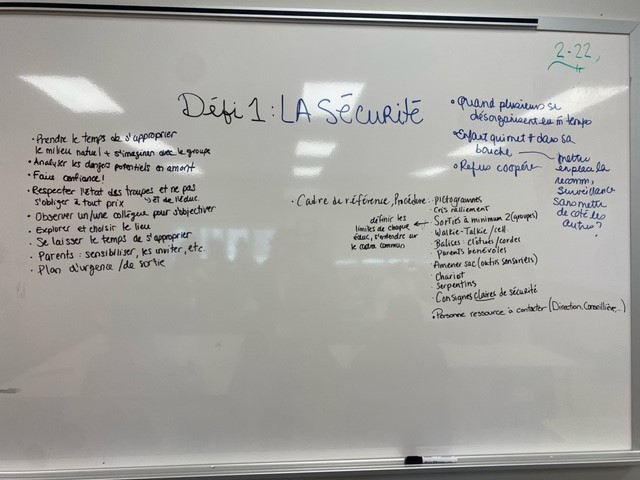 2-22,
Défi 1 : LA SÉCURITÉ
• Prendre le temps de s'approprier
le milieu naturel + s'imaginer avec le groupe
• Analyser les dangers potentiels en amont
• Faire confiance!
• Respecter l'état des troupes et ne pas
s'obliger à tout prix
↳ET de l'éduc.
• Observer un/une collègue pour s'objectiver
• Explorer et choisir le lieu
• Se laisser le temps de s'approprier
• Parents : sensibiliser, les inviter, etc.
• Plan d'urgence / de sortie
• Cadre du référence, Procédure :
• Pictogrammes
Cris ralliement
Sorties à minimum 2 (groupes)
définir les
limites de chaque
éduc, s'entendre sur
le cadre commun
Walkie-Talkie / cell.
Balises : clôtures / cordes
Parents bénévoles
Amener sac (outils sensoriels)
• Chariot
• Serpentins
• Consignes claires de sécurité
• Personne ressource à contacter (Direction, Conseillère,...)
• Quand plusieurs se
désorganisent en m̂ temps
• Enfant qui met + dans sa
bouche
• Refus coopérer
mettre
en place la
recomm,
surveillance
sans mettre
de côté les
autres?